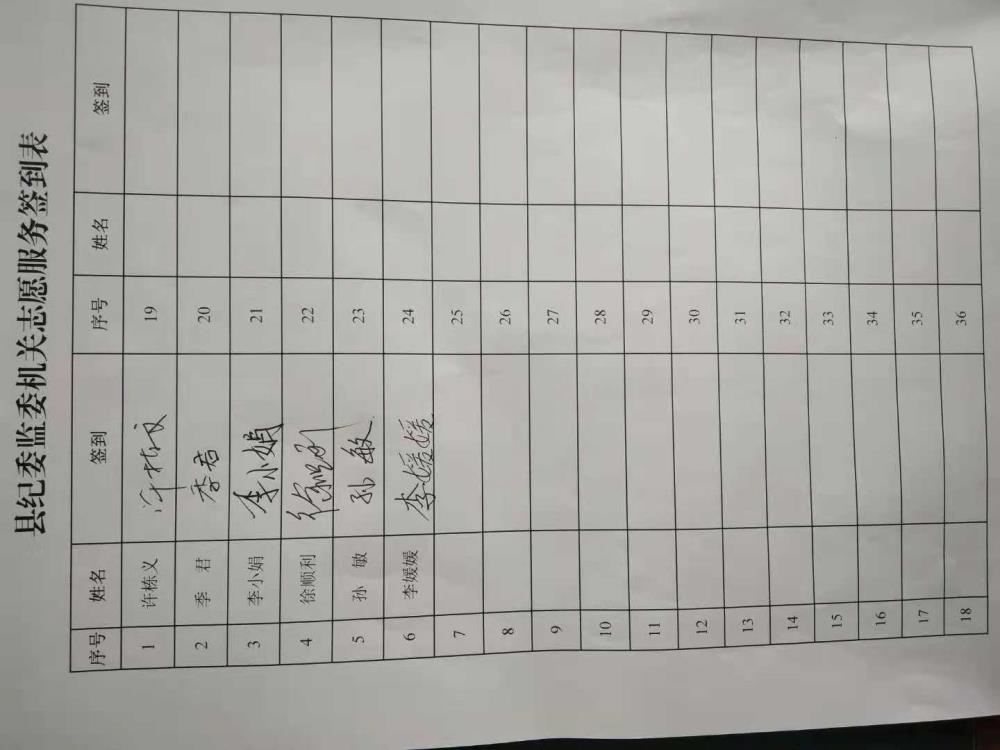 县纪委监委机关志愿服务签到表
序号 姓名 签到 序号 姓名 签到
1 许栋义 许栋义 19
2 季 君 季君 20
3 李小娟 李小娟 21
4 徐顺利 徐顺利 22
5 孙 敏 孙敏 23
6 李媛媛 李媛媛 24
7 25
8 26
9 27
10 28
11 29
12 30
13 31
14 32
15 33
16 34
17 35
18 36